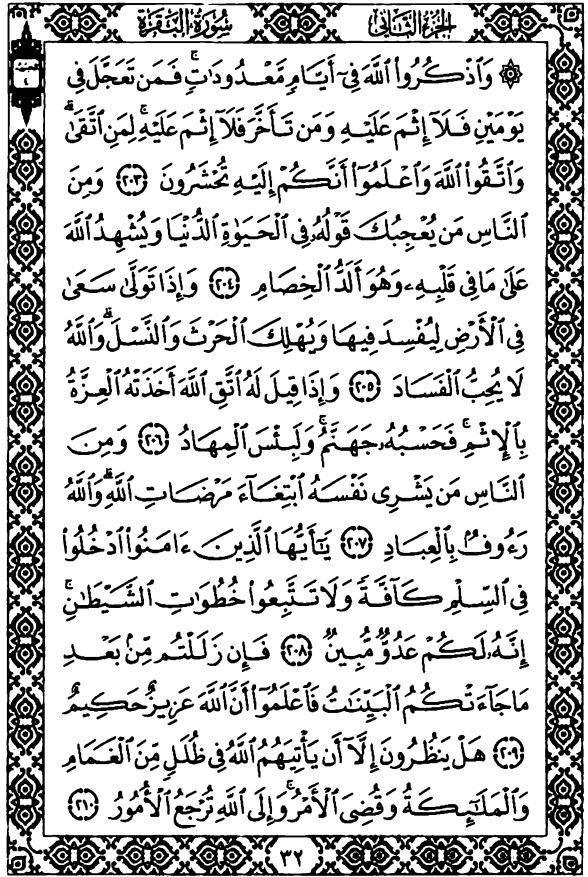 سُورَةُ البَقَرَةِ الجُزْءُ الثَّانِي
۞ وَٱذْكُرُوا۟ ٱللَّهَ فِىٓ أَيَّامٍ مَّعْدُودَٰتٍ ۚ فَمَن تَعَجَّلَ فِى
يَوْمَيْنِ فَلَآ إِثْمَ عَلَيْهِ وَمَن تَأَخَّرَ فَلَآ إِثْمَ عَلَيْهِ ۚ لِمَنِ ٱتَّقَىٰ ۗ
وَٱتَّقُوا۟ ٱللَّهَ وَٱعْلَمُوٓا۟ أَنَّكُمْ إِلَيْهِ تُحْشَرُونَ ٢٠٣ وَمِنَ
ٱلنَّاسِ مَن يُعْجِبُكَ قَوْلُهُۥ فِى ٱلْحَيَوٰةِ ٱلدُّنْيَا وَيُشْهِدُ ٱللَّهَ
عَلَىٰ مَا فِى قَلْبِهِۦ وَهُوَ أَلَدُّ ٱلْخِصَامِ ٢٠٤ وَإِذَا تَوَلَّىٰ سَعَىٰ
فِى ٱلْأَرْضِ لِيُفْسِدَ فِيهَا وَيُهْلِكَ ٱلْحَرْثَ وَٱلنَّسْلَ ۗ وَٱللَّهُ
لَا يُحِبُّ ٱلْفَسَادَ ٢٠٥ وَإِذَا قِيلَ لَهُ ٱتَّقِ ٱللَّهَ أَخَذَتْهُ ٱلْعِزَّةُ
بِٱلْإِثْمِ ۚ فَحَسْبُهُۥ جَهَنَّمُ ۚ وَلَبِئْسَ ٱلْمِهَادُ ٢٠٦ وَمِنَ
ٱلنَّاسِ مَن يَشْرِى نَفْسَهُ ٱبْتِغَآءَ مَرْضَاتِ ٱللَّهِ ۗ وَٱللَّهُ
رَءُوفٌۢ بِٱلْعِبَادِ ٢٠٧ يَٰٓأَيُّهَا ٱلَّذِينَ ءَامَنُوا۟ ٱدْخُلُوا۟
فِى ٱلسِّلْمِ كَآفَّةً وَلَا تَتَّبِعُوا۟ خُطُوَٰتِ ٱلشَّيْطَٰنِ ۚ
إِنَّهُۥ لَكُمْ عَدُوٌّ مُّبِينٌ ٢٠٨ فَإِن زَلَلْتُم مِّنۢ بَعْدِ
مَا جَآءَتْكُمُ ٱلْبَيِّنَٰتُ فَٱعْلَمُوٓا۟ أَنَّ ٱللَّهَ عَزِيزٌ حَكِيمٌ
٢٠٩ هَلْ يَنظُرُونَ إِلَّآ أَن يَأْتِيَهُمُ ٱللَّهُ فِى ظُلَلٍ مِّنَ ٱلْغَمَامِ
وَٱلْمَلَٰٓئِكَةُ وَقُضِىَ ٱلْأَمْرُ ۚ وَإِلَى ٱللَّهِ تُرْجَعُ ٱلْأُمُورُ ٢١٠
٣٢